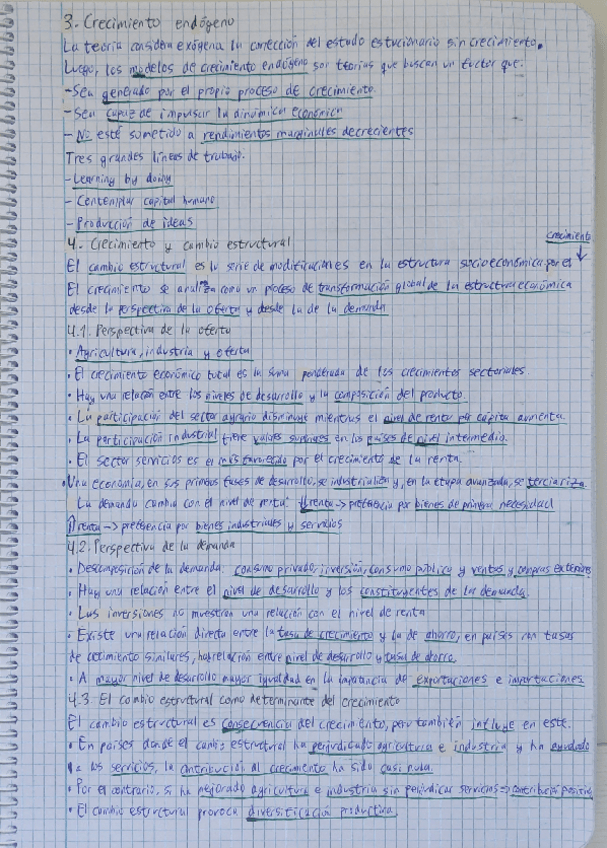 3. Crecimiento endógeno
La teoría considera exógena la corrección del estado estacionario sin crecimiento.
Luego, los modelos de crecimiento endógeno son teorías que buscan un factor que:
- Sea generado por el propio proceso de crecimiento.
- Sea capaz de impulsar la dinámica económica
- No esté sometido a rendimientos marginales decrecientes
Tres grandes líneas de trabajo.
- Learning by doing
- Contemplar capital humano
- Producción de ideas
4.- Crecimiento y cambio estructural
crecimiento
El cambio estructural es la serie de modificaciones en la estructura socioeconómica por el
El crecimiento se analiza como un proceso de transformación global de la estructura económica
desde la perspectiva de la oferta y desde la de la demanda
4.1. Perspectiva de la oferta
• Agricultura, industria y oferta
• El crecimiento económico total es la suma ponderada de los crecimientos sectoriales.
• Hay una relación entre los niveles de desarrollo y la composición del producto.
• La participación del sector agrario disminuye mientras el nivel de renta per cápita aumenta.
• La participación industrial tiene valores superiores en los países de nivel intermedio.
• El sector servicios es el más favorecido por el crecimiento de la renta.
• Una economía, en sus primeras fases de desarrollo, se industrializa y, en la etapa avanzada, se terciariza.
La demanda cambia con el nivel de renta: ⇓renta -> preferencia por bienes de primera necesidad
⇑renta -> preferencia por bienes industriales y servicios
4.2. Perspectiva de la demanda
• Descomposición de la demanda: consumo privado, inversión, consumo público y ventas y compras exteriores
• Hay una relación entre el nivel de desarrollo y los constituyentes de la demanda.
• Las inversiones no muestran una relación con el nivel de renta
• Existe una relación directa entre la tasa de crecimiento y la de ahorro, en países con tasas
de crecimiento similares, hay relación entre nivel de desarrollo y tasa de ahorro.
• A mayor nivel de desarrollo mayor igualdad en la importancia de exportaciones e importaciones
4.3. El cambio estructural como determinante del crecimiento
El cambio estructural es consecuencia del crecimiento, pero también influye en este.
• En países donde el cambio estructural ha perjudicado agricultura e industria y ha ayudado
a los servicios, la contribución al crecimiento ha sido casi nula.
• Por el contrario, si ha mejorado agricultura e industria sin perjudicar servicios => contribución positiva
• El cambio estructural provoca diversificación productiva